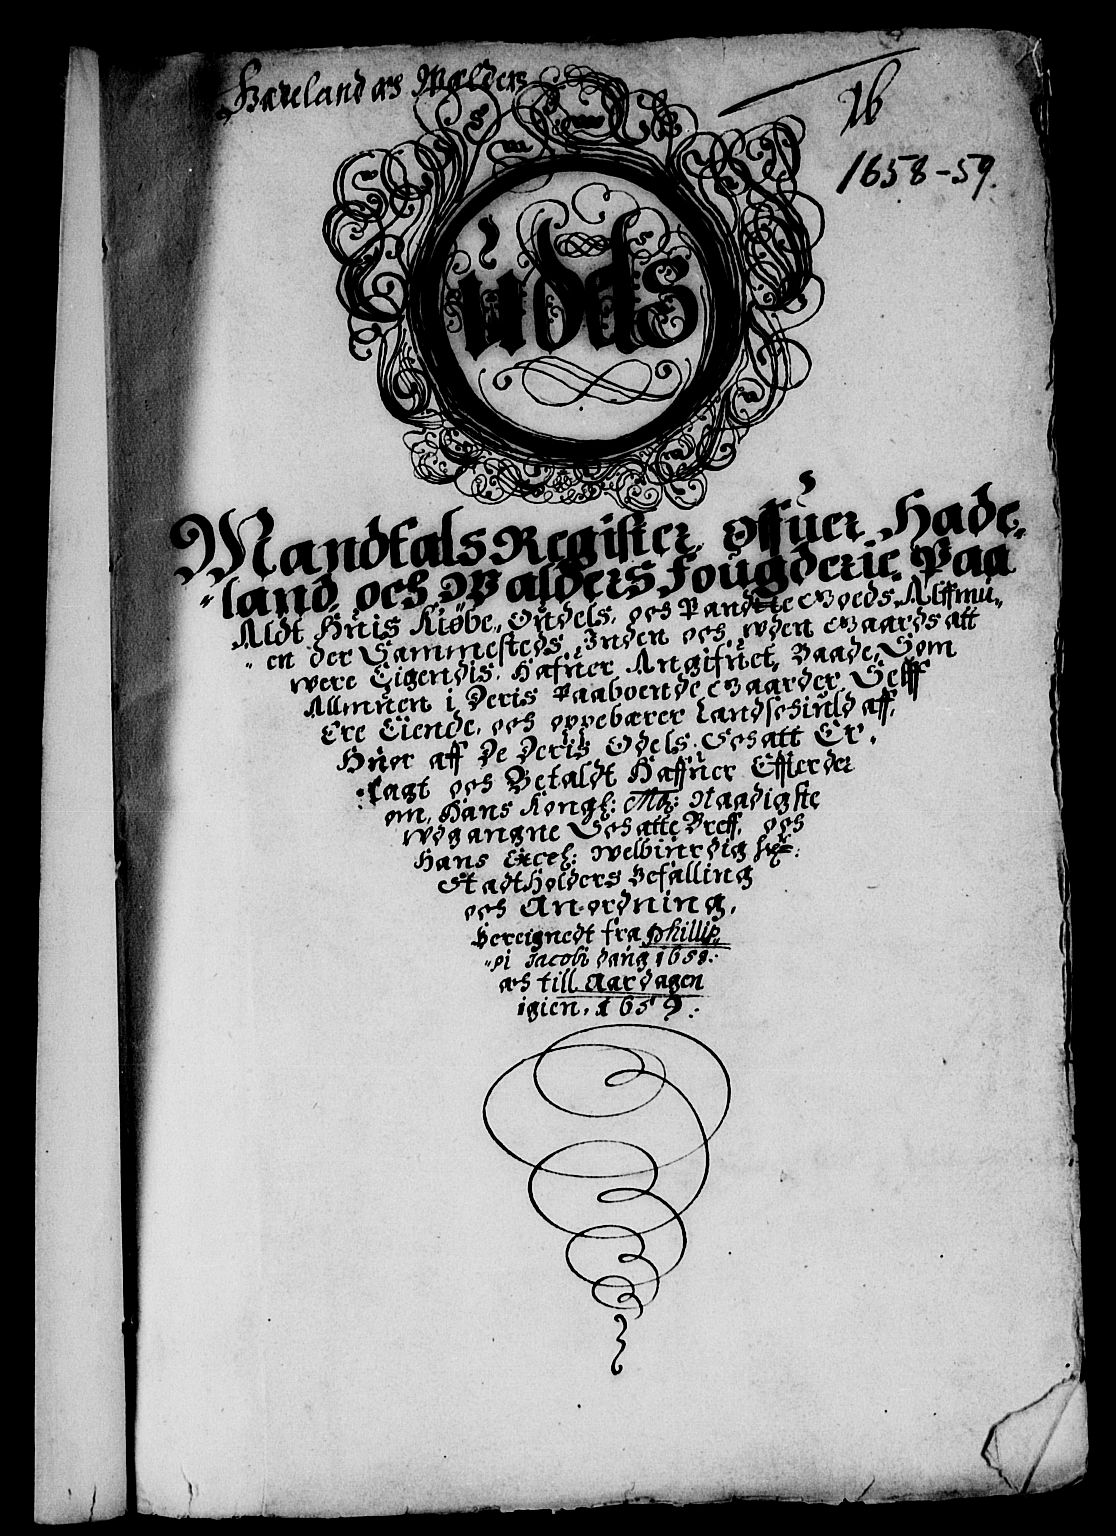 Hadeland os Walders
16
1658-59.
údds
Mandtals Register øffúer Hade„
„land, och Walders Fougderie. Paa
Aldt Húis Kiøbe„ Oudels, och Pandtte Goeds„ Allmú„
„en der Sammesteds. Inden och wden Gaards att
were Eigendis, Hafúer Angifúet, Baade, Som
Allmúen i deris Paaboende Gaarder Selff
Ere Eiende, och oppebærer Landschúld aff,
Húor aff De Deris Odels. Schatt Er,
„lagt och Betaldt Haffúer Effterde
om, Hans Kongl: Maÿ: Naadigste
wdgangne Schatte Breff, och
Hans Excel: Welbiurdig Hr:
Stadtholders Befalling
och An-ordning,
Bereignedt fra Phillip„
„pi Jacobi daug 1658:
os till Aardagen
igien, 1659: